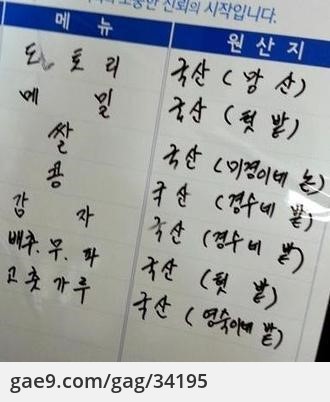 소중한 신뢰의 시작입니다.
메 뉴 원 산 지
도 토 리 국산 ( 앞 산 )
메 밀 국산 ( 텃 밭 )
쌀 국산 ( 미경이네 논 )
콩 국산 ( 경수네 밭 )
감 자 국산 ( 경수네 밭 )
배추. 무. 파 국산 ( 텃 밭 )
고춧가루 국산 ( 영숙이네 밭 )
gae9.com/gag/34195